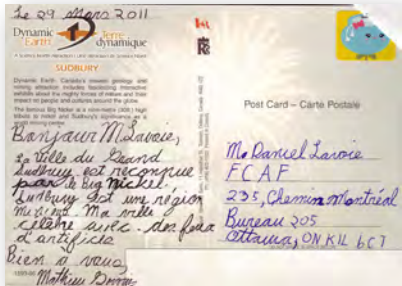 Le 29 Mars 2011
Dynamic Earth
Terre dynamique
SUDBURY
Dynamic Earth, Canada's newest geology and mining attraction includes fascinating interactive exhibits about the mighty forces of nature and their impact on people and cultures around the globe.
The famous Big Nickel is a nine-metre (30ft.) high tribute to nickel and Sudbury's significance as a world mining centre.
Bonjour M. Lavoie,
La Ville du Grand
Sudbury est reconnue
par le big Nickel.
Sudbury est une région
minière. Ma ville
célèbre avec des feux
d'artifices
Bien à vous,
Mathieu
Post Card – Carte Postale
M. Daniel Lavoie
FCAF
235, Chemin Montréal
Bureau 205
Ottawa, ON K1L 6C7